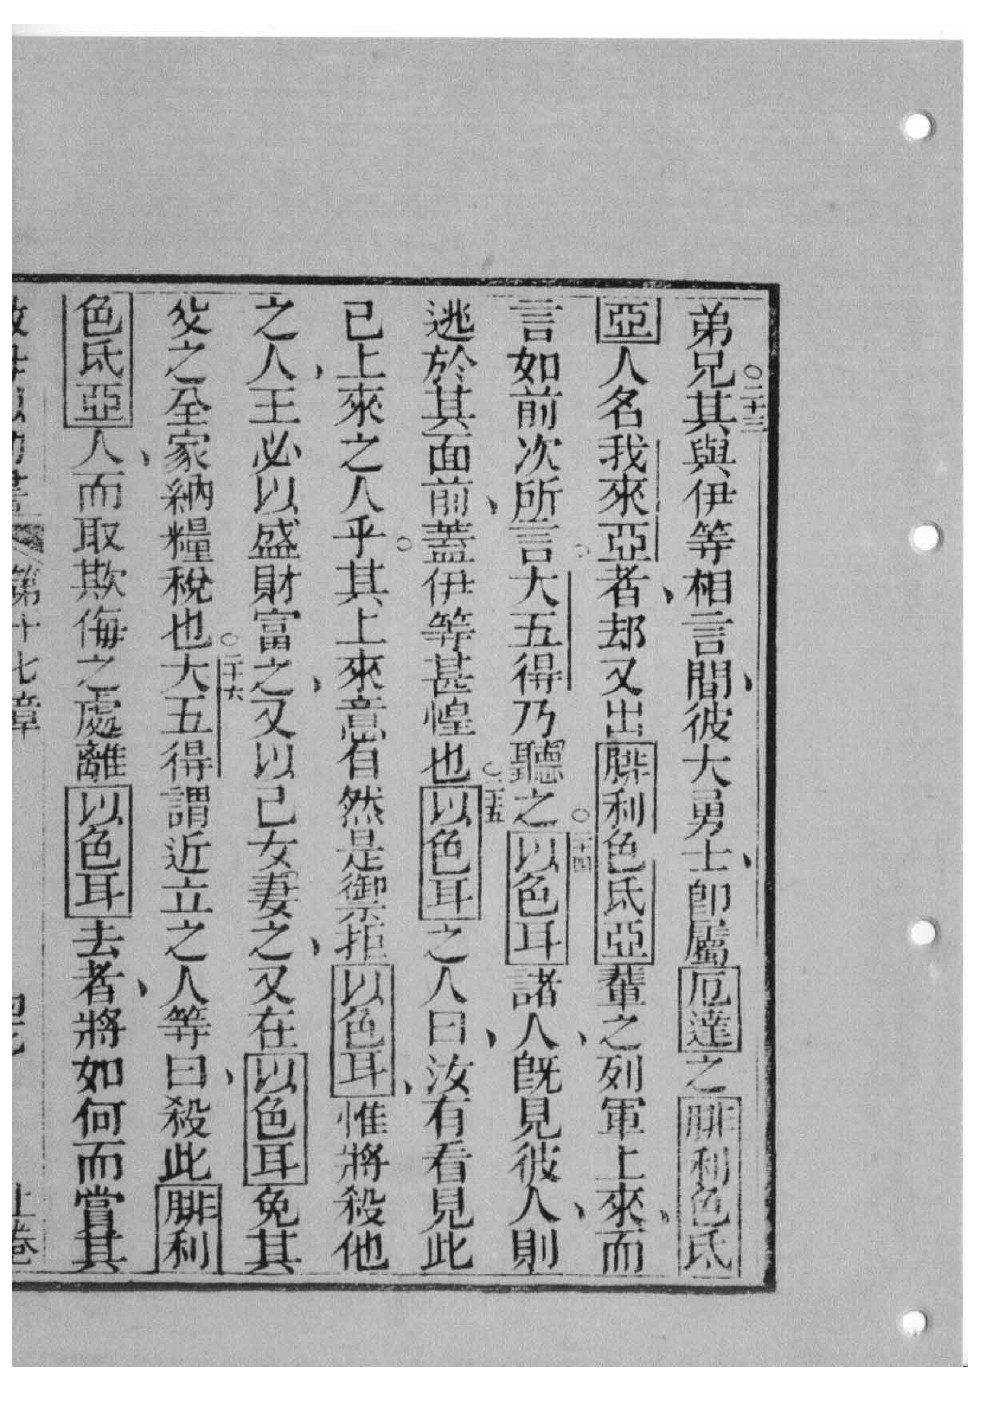 弟兄○二十三其與伊等相言間、彼大勇士、卽屬厄達之腓利色氐
亞人名我來亞者、却又出腓利色氐亞輩之列軍上來、而
言如前次所言○大五得乃聽之○二十四以色耳諸人、旣見彼人、則
逃於其面前、蓋伊等甚惶也○二十五以色耳之人曰、汝有看見此
已上來之人乎○其上來意自然是禦拒以色耳、惟將殺他
之人、王必以盛財富之、又以己女妻之、又在以色耳免其
父之全家納糧稅也○二十六大五得謂近立之人等曰、殺此腓利
色氐亞人、而取欺侮之處離以色耳去者、將如何而當其
第十七章 上卷